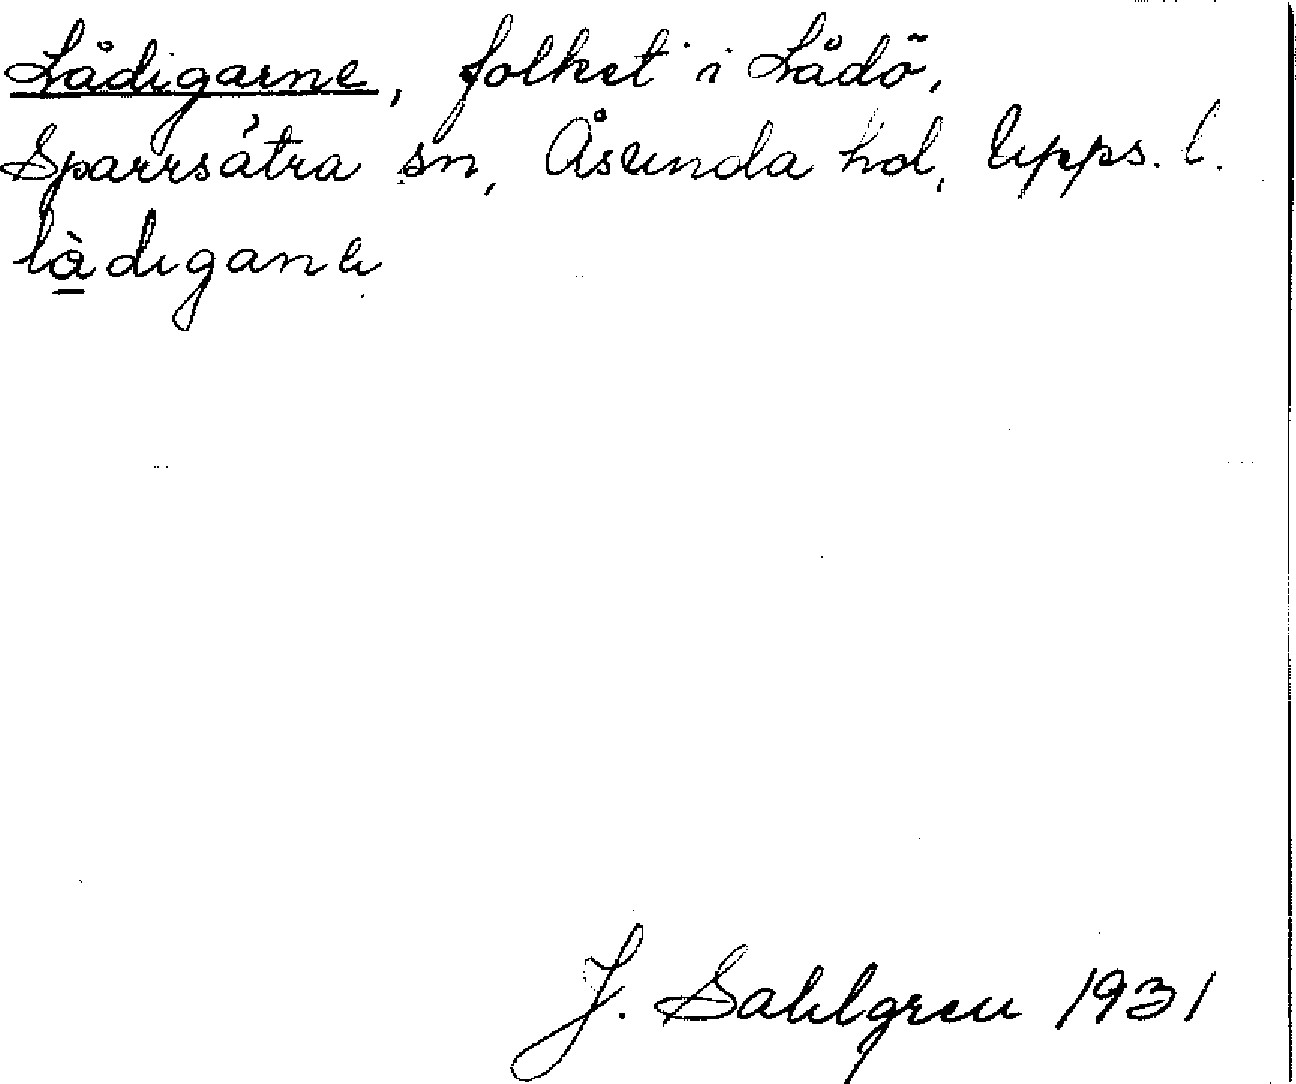 Lådigarne, folket i Lådö,
Sparrsåtra sn, Åsunda hd, Upps. l.
J. Sahlgren 1931